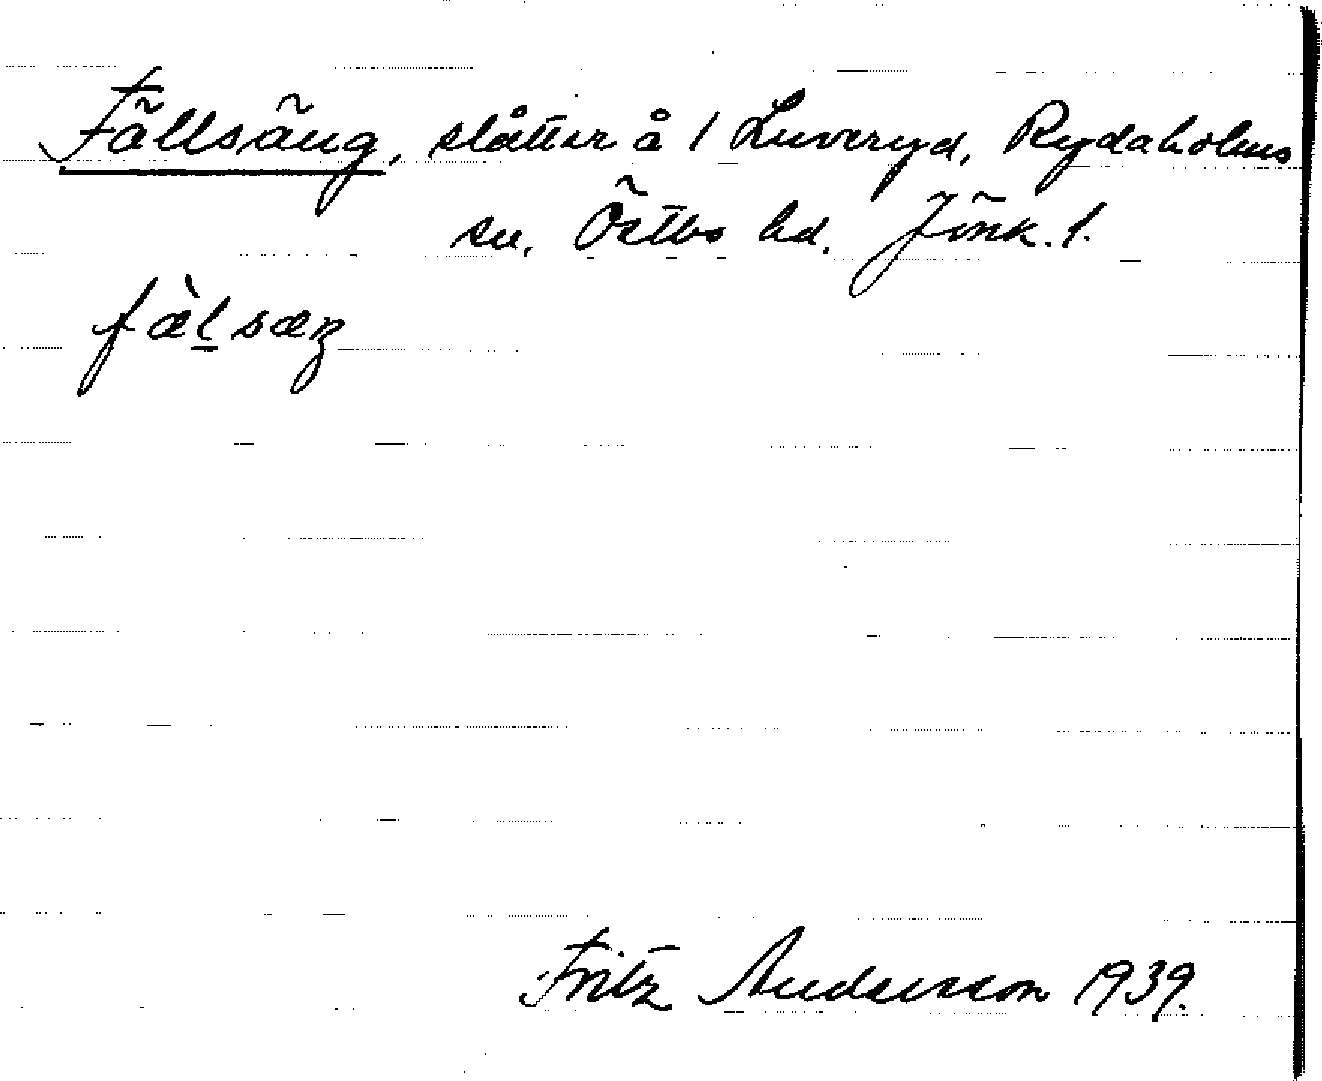 Fällsäng, slåtter å 1 Luveryd, Rydaholms
sn, Östbo hd. Jönk. l.
fæ̀lsæŋ
Fritz Andersson 1939.